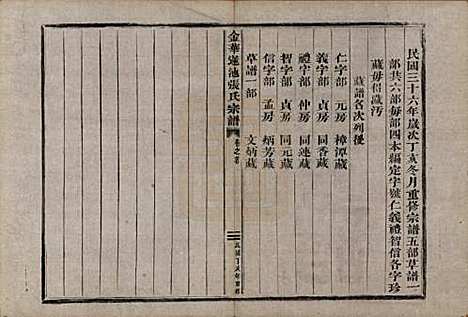 民國三十六年歲次丁亥冬月重修宗譜五部草譜一
部共六部每部四本編定字號仁義禮智信各字珍
藏毋似濊污
藏譜各次列後
仁字部 元房 樟潭藏
義字部 貞房 同香藏
禮字部 仲房 同蓮藏
智字部 貞房 同元藏
信字部 孟房 炳芳藏
草譜一部 文炳藏
金華蓮池張氏宗譜 卷之